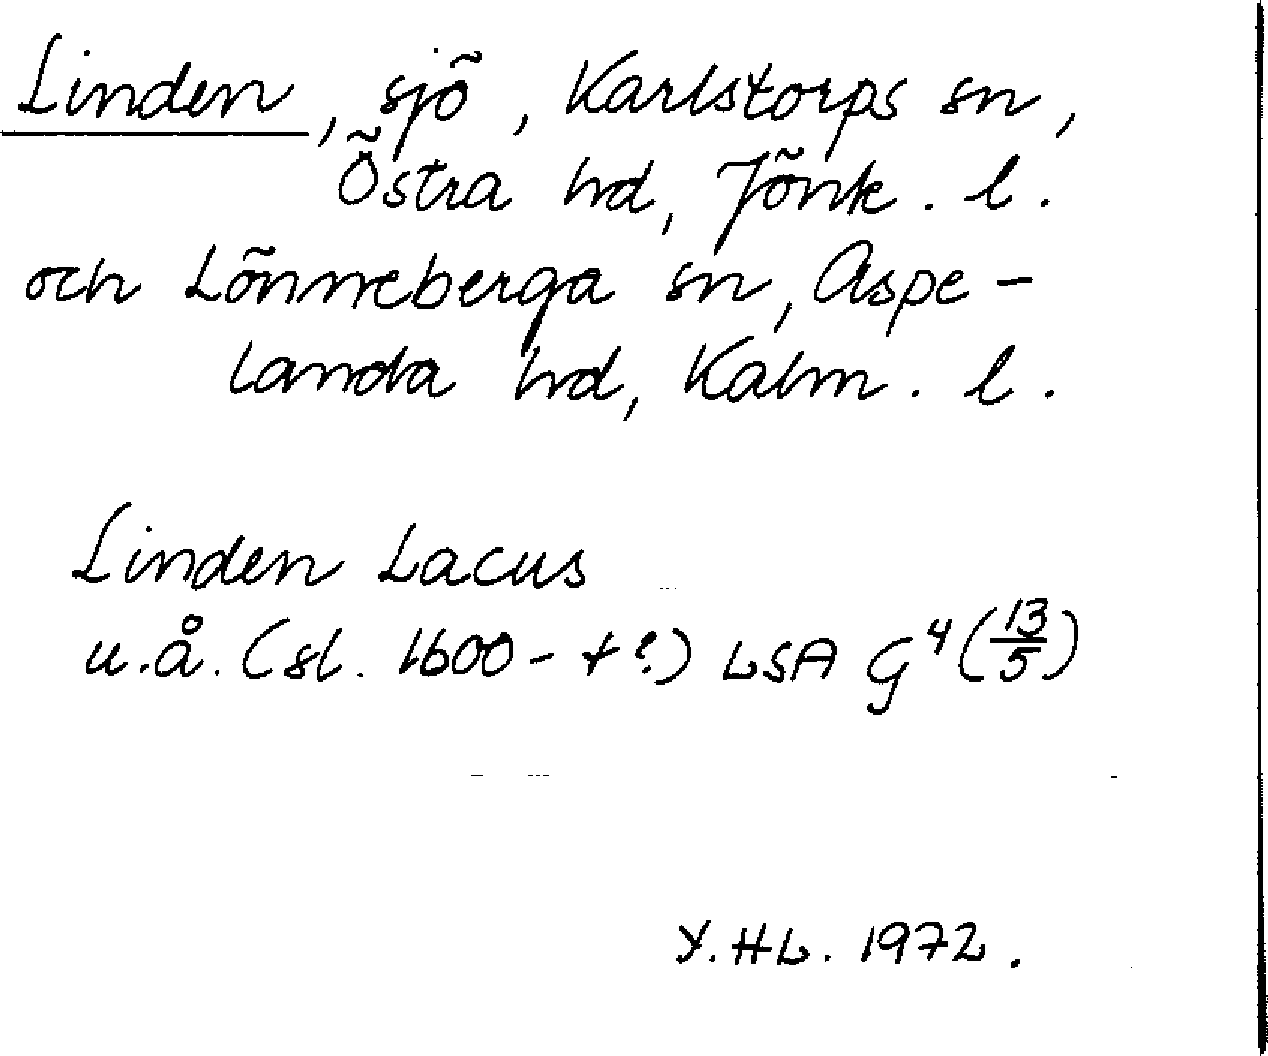 Linden, sjö, Karlstorps sn,
Östra hd, Jönk. l.
och Lönneberga sn, Aspe-
landa hd, Kalm. l.
Linden Lacus
u.å. (sl. 1600-t?) LSA G⁴(13/5)
Y.HL. 1972.